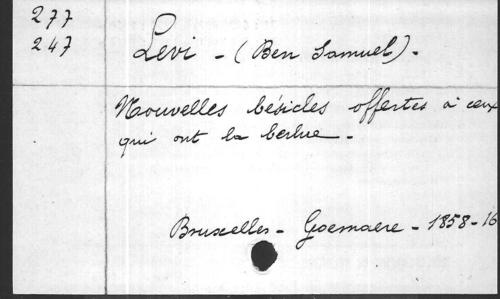 277
247 Levi - (Ben Samuel).
Nouvelles bésicles offertes à ceux
qui ont la berlue.
Bruxelles - Goemaere - 1858 - 16